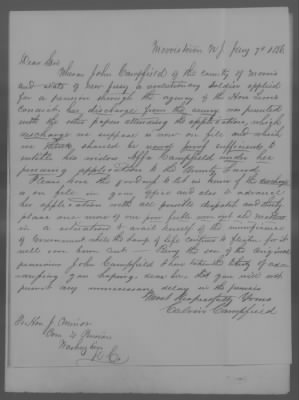 Morristown N.J. Jany 7th 1856
Dear Sir
When John Campfield of the County of Morris
and State of New Jersey a revolutionary soldier applied
for a pension through the agency of the Hon Lewis
Condict, his discharge from the army was presented
with the other papers attending the application, which
discharge we suppose is now on file and which
we think should be proof sufficient to
entitle his widow Campfield under her
pending application to the Bounty Land
Please have the goodness to let us know if the discharge
is on file in your office and also to advance
her application with all possible dispatch and thereby
place one more of our poor fully worn out old mothers
in a situation to avail herself of the munificence
of Government while the lamp of life continues to flicker for it
will soon burn out — Being the son of the original
pensioner John Campfield I have taken the liberty of
you hoping dear Sir that you will not
permit any unnecessary delay in the premises
Most Respectfully Yours
Calvin Campfield
To Hon J. Minot
Com of Pensions
Washington
D.C.